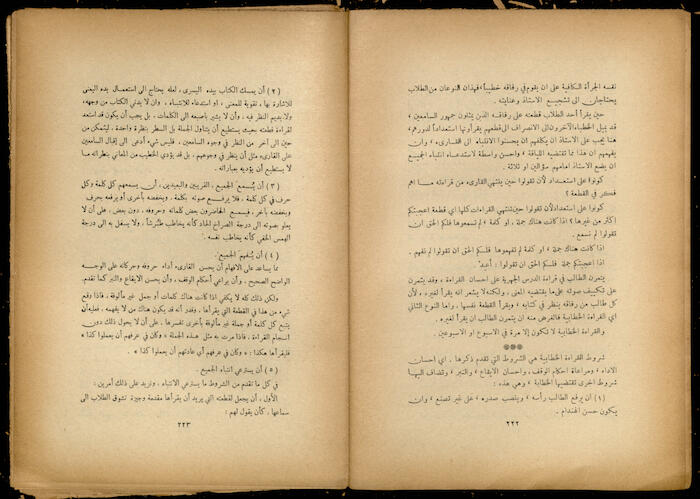 نفسه الجرأة الكافية على ان يقوم في رفاقه خطيباً؛ فهذان النوعان من الطلاب
يحتاجان الى تشجيع الاستاذ وعنايته .
حين يقرأ أحد الطلاب قطعته على رفاقه الذين يمثلون جمهور السامعين ،
قد يميل الخطباء الآخرون الى الانصراف الى قطعهم يقرأونها استعداداً لدورهم ؛
هنا يجب على الاستاذ ان يكلفهم ان يحسنوا الانتباه الى القارىء ، وان
يفهمهم ان هذا مما تقتضيه اللياقة ، واحسن واسطة لاستدعاء انتباه الجميع
ان يضع الاستاذ امامهم سؤالين او ثلاثة .
كونوا على استعداد لأن تقولوا حين ينتهي القارىء من قراءته ما اهم
فكر في القطعة ؟
كونوا على استعداد لأن تقولوا حين تنتهي القراءات كلها اي قطعة اعجبتكم
اكثر من غيرها ؟ اذا كانت هناك جملة ، او كلمة ، لم تسمعوها فلكم الحق ان
تقولوا لم نسمع .
اذا كانت هناك جملة ، او كلمة لم تفهموها فلكم الحق ان تقولوا لم نفهم .
اذا اعجبتكم جملة فلكم الحق ان تقولوا : أعد
يتمرن الطالب في قراءة الدرس الجهرية على احسان القراءة ، وقد يتمرن
على تكييف صوته على ما يقتضيه المعنى ، ولكنه لا يشعر انه يقرأ لغيره ، لأن
كل طالب من رفاقه ينظر في كتابه ، ويقرأ القطعة نفسها . واما النوع الثاني
اي القراءة الخطابية فالغرض منه ان يتمرن الطالب ان يقرأ لغيره .
والقراءة الخطابية لا تكون إلا مرة في الاسبوع او الاسبوعين .
شروط القراءة الخطابية هي الشروط التي تقدم ذكرها . اي احسان
الاداء ، ومراعاة احكام الوقف ، واحسان الايقاع ، والنبر ، وتضاف اليها
شروط اخرى تقتضيها الخطابة ، وهي هذه :
(١) ان يرفع الطالب رأسه ، وينصب صدره ، على غير تصنع ، وان
يكون حسن الهندام .
٢٢٢
(٢) أن يمسك الكتاب بيده اليسرى ، لعله يحتاج الى استعمال يده اليمنى
للاشارة بها ، تقوية للمعنى ، او استدعاء للانتباه ، وان لا يدني الكتاب من وجهه ،
ولا يديم النظر فيه ، وأن لا يشير باصبعه الى الكلمات ، بل يجب أن يكون قد استعد
لقراءة قطعته بحيث يستطيع أن يتناول الجملة بل السطر بنظرة واحدة ، ليتمكن من
حين الى آخر من النظر في وجوه السامعين . فليس شيء أدعى إلى إقبال السامعين
على القارىء مثل أن ينظر في وجوههم ، بل قد يؤدي الخطيب من المعاني بنظراته ما
لا يستطيع أن يؤديه بعباراته .
(٣) أن يُسمع الجميع ، القريبين والبعيدين ، أن يسمعهم كل كلمة وكل
حرف في كل كلمة ، فلا يرفع صوته بكلمة ، ويخفضه بأخرى أو يرفعه بحرف
ويخفضه بآخر ، فيسمع الحاضرون بعض كلماته وحروفه ، دون بعض . على أن لا
يعلو بصوته الى درجة الصراخ الحاد كأنه يخاطب طُرْشاً ، ولا يسفل به الى درجة
الهمس الخفي كأنه يخاطب نفسه .
(٤) أن يُفهم الجميع .
مما يساعد على الافهام أن يحسن القارىء أداء حروفه وحركاته على الوجه
الواضح الصحيح ، وأن يراعي أحكام الوقف ، وأن يحسن الايقاع والنبر كما تقدم .
ولكن ذلك كله لا يكفي اذا كانت هناك كلمات أو جمل غير مألوفة ، فاذا وقع
شيء من هذا في القطعة التي يقرأها ، وقدر أنه قد يكون هناك من لا يفهمه ، فعليه أن
يتبع كل كلمة أو جملة غير مألوفة بأخرى تفسرها ، على أن لا يحول ذلك دون
انسجام القراءة . فاذا مرت به مثل هذه الجملة « وكان في عرفهم أن يعملوا كذا »
فليقرأها هكذا : « وكان في عرفهم أي عادتهم أن يعملوا كذا » .
(٥) أن يسترعي انتباه الجميع .
في كل ما تقدم من الشروط ما يسترعي الانتباه . ونزيد على ذلك أمرين :
الأول ، أن يجعل لقطعته التي يريد أن يقرأها مقدمة وجيزة تشوق الطلاب الى
سماعها ، كأن يقول لهم :
٢٢٣